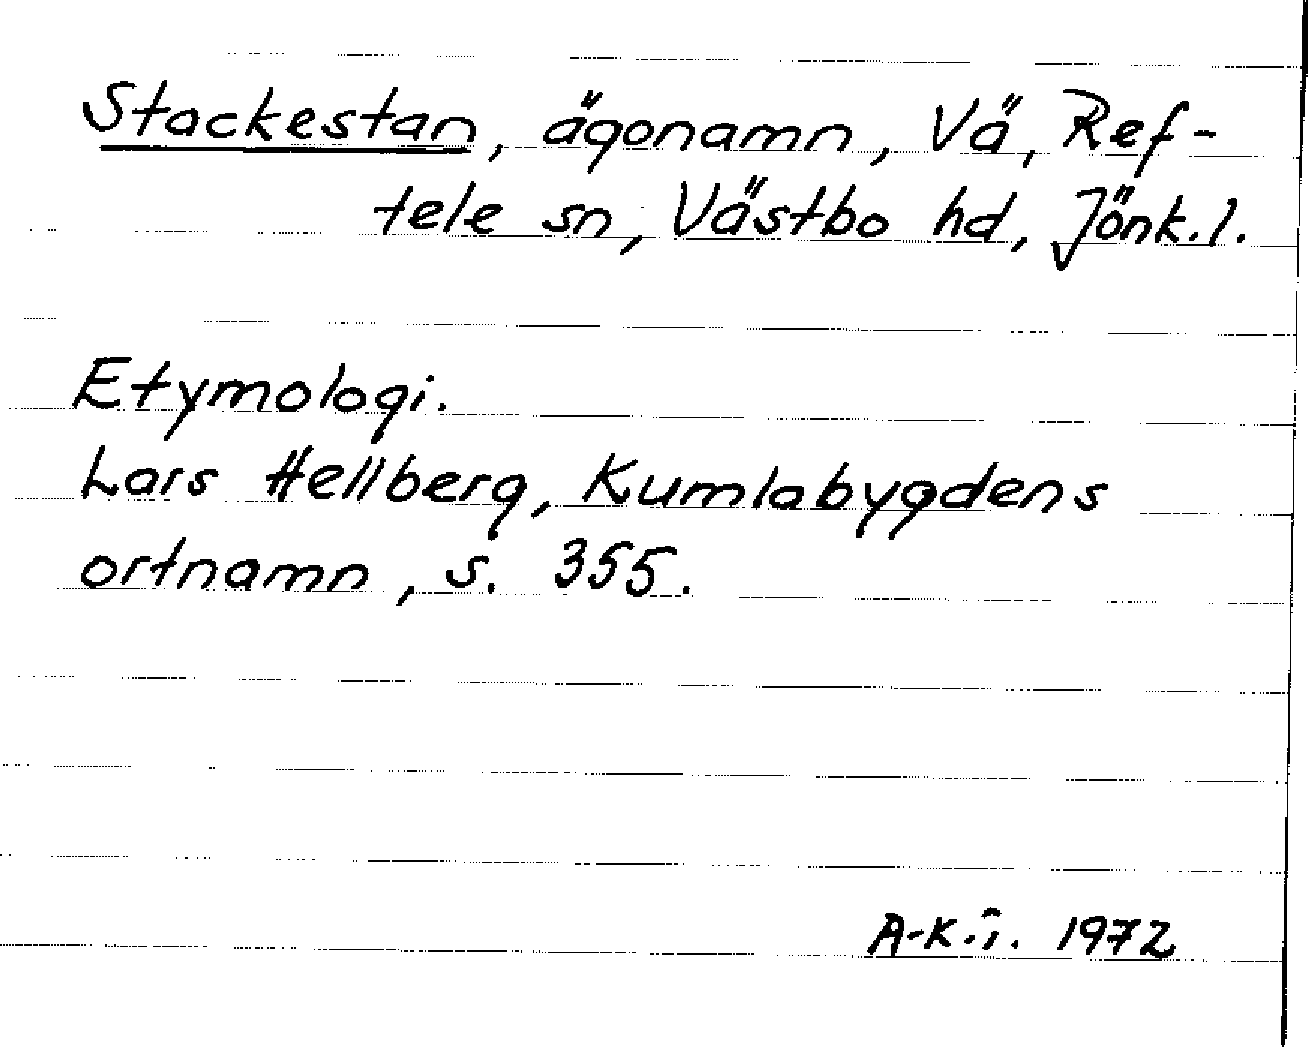 Stackestan, ägonamn, Vä, Ref-
tele sn, Västbo hd, Jönk.l.
Etymologi.
Lars Hellberg, Kumlabygdens
ortnamn, s. 355.
1972